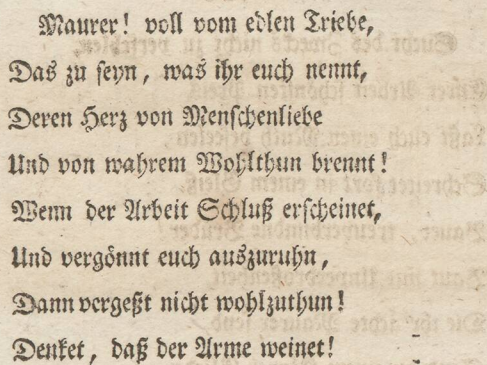 Maurer! voll vom edlen Triebe,
Das zu seyn, was ihr euch nennt,
Deren Herz von Menschenliebe
Und von wahrem Wohlthun brennt!
Wenn der Arbeit Schluß erscheinet,
Und vergönnt euch auszuruhn,
Dann vergeßt nicht wohlzuthun!
Denket, daß der Arme weinet!